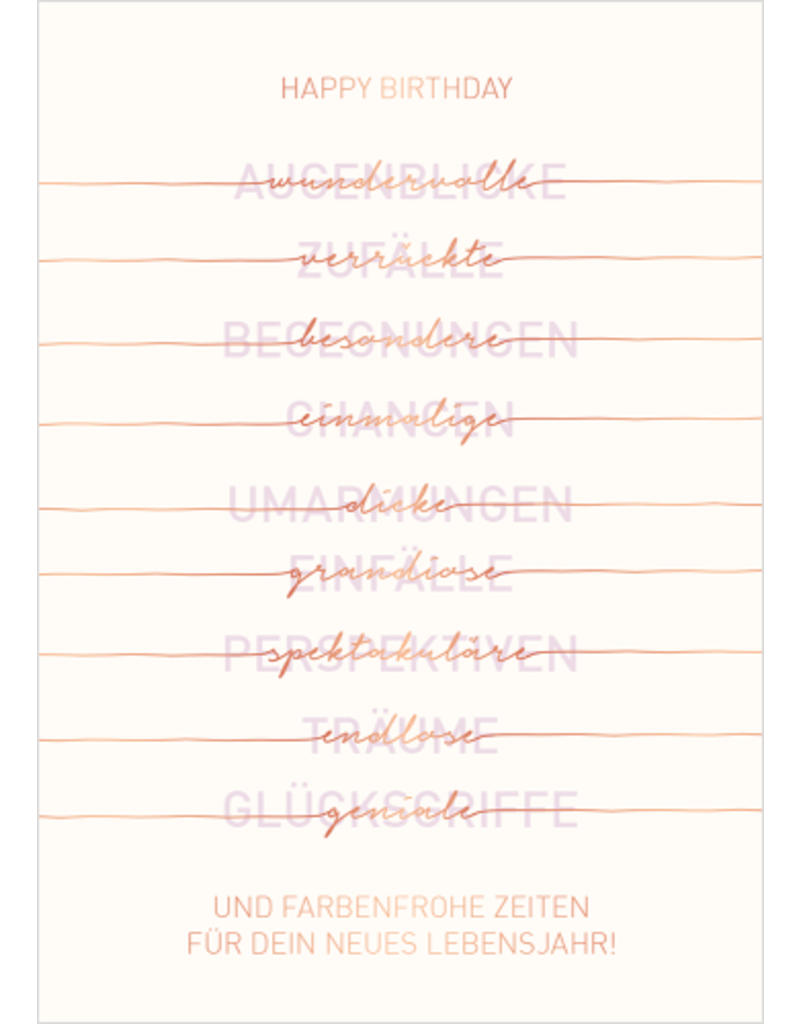 HAPPY BIRTHDAY
wundervolle AUGENBLICKE
verrückte ZUFÄLLE
besondere BEGEGNUNGEN
einmalige CHANCEN
dicke UMARMUNGEN
grandiose EINFÄLLE
spektakuläre PERSPEKTIVEN
endlose TRÄUME
geniale GLÜCKSGRIFFE
UND FARBENFROHE ZEITEN
FÜR DEIN NEUES LEBENSJAHR!